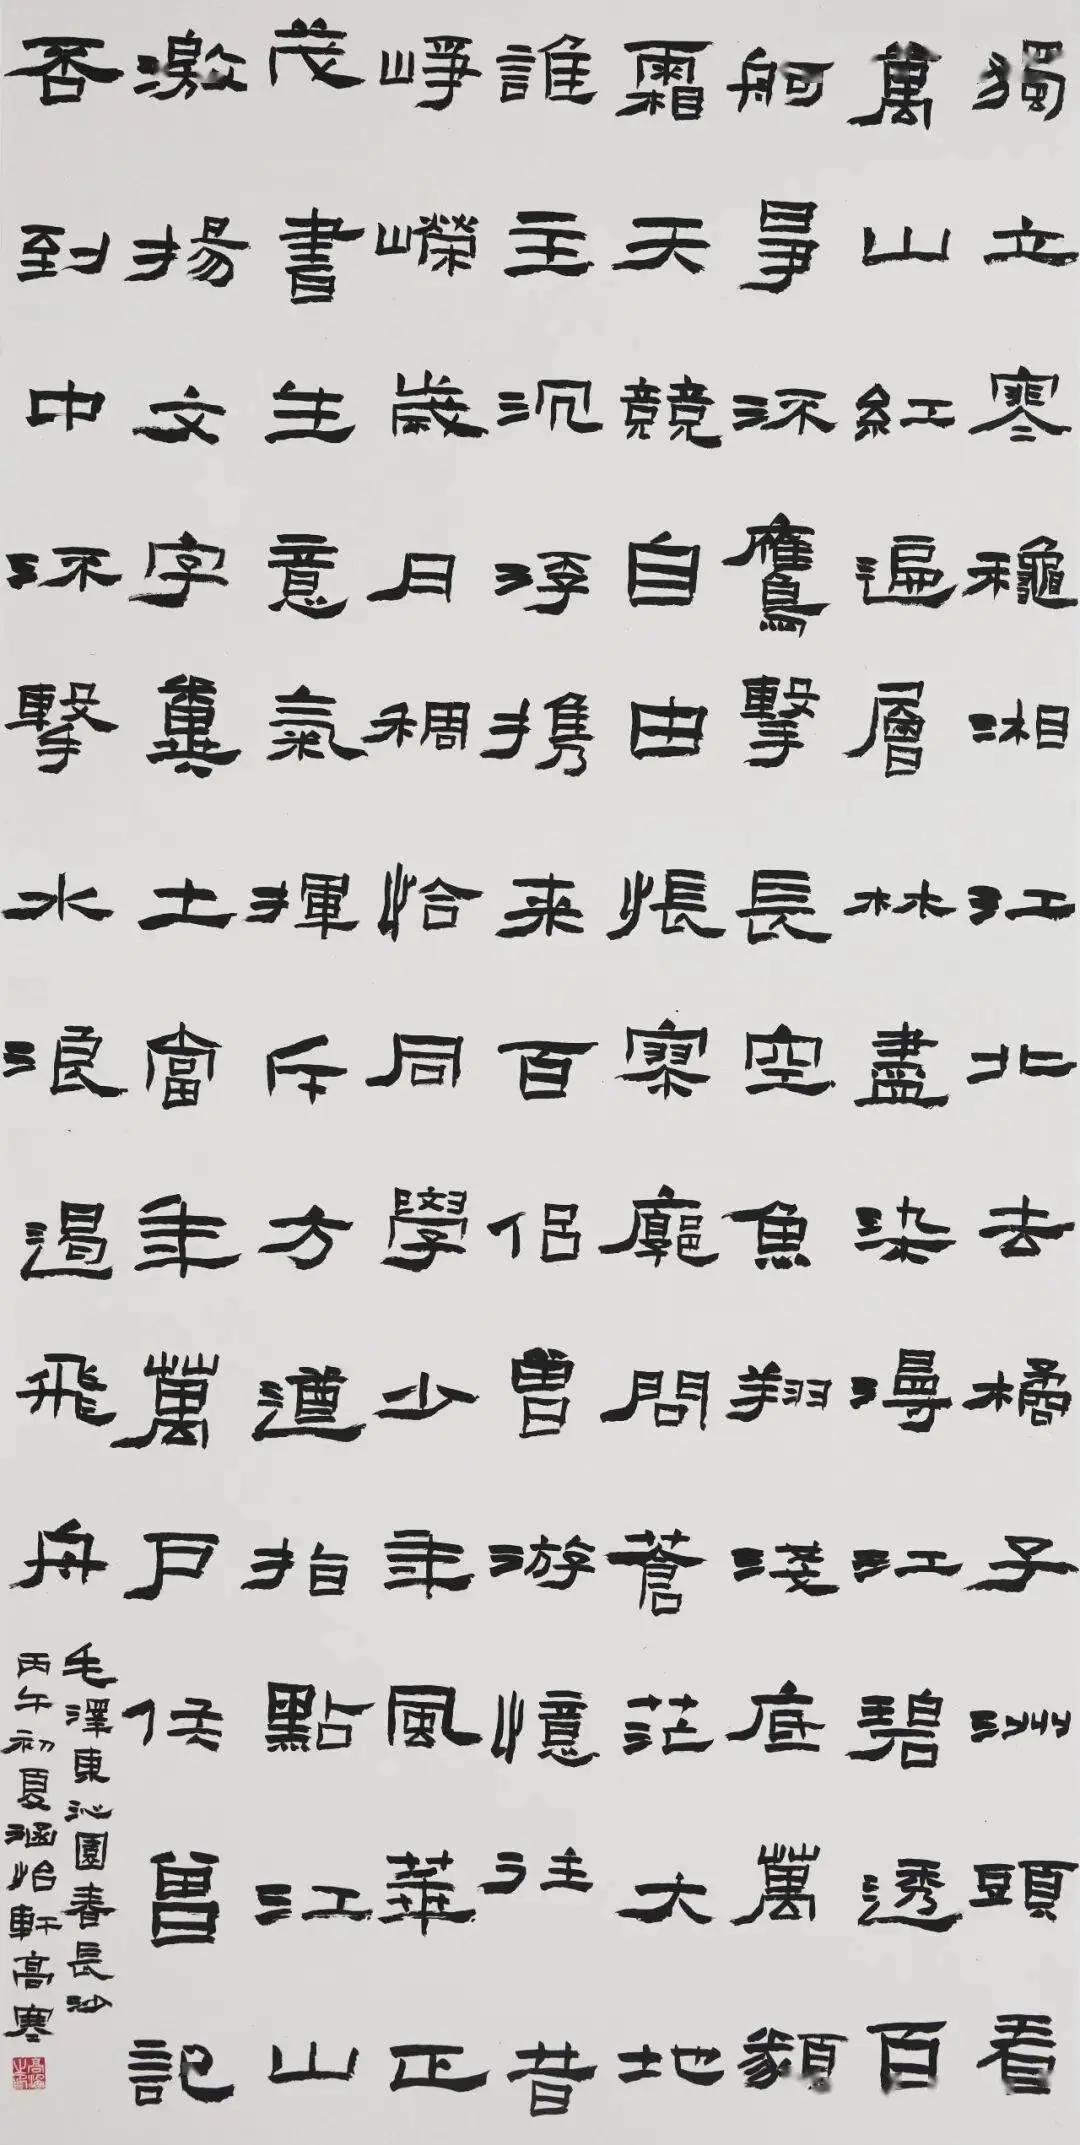 獨立寒穐湘江北去橘子洲頭看
萬山紅遍層林盡染漫江碧透百
舸爭流鷹擊長空魚翔淺底萬類
霜天競自由悵寥廓問蒼茫大地
誰主沉浮携来百侶曾游憶往昔
崢嶸歲月稠恰同學少年風華正
茂書生意氣揮斥方遒指點江山
激揚文字糞土當年萬戶侯曾記
否到中流擊水浪遏飛舟
毛澤東沁園春長沙
丙午初夏涵怡軒高寒